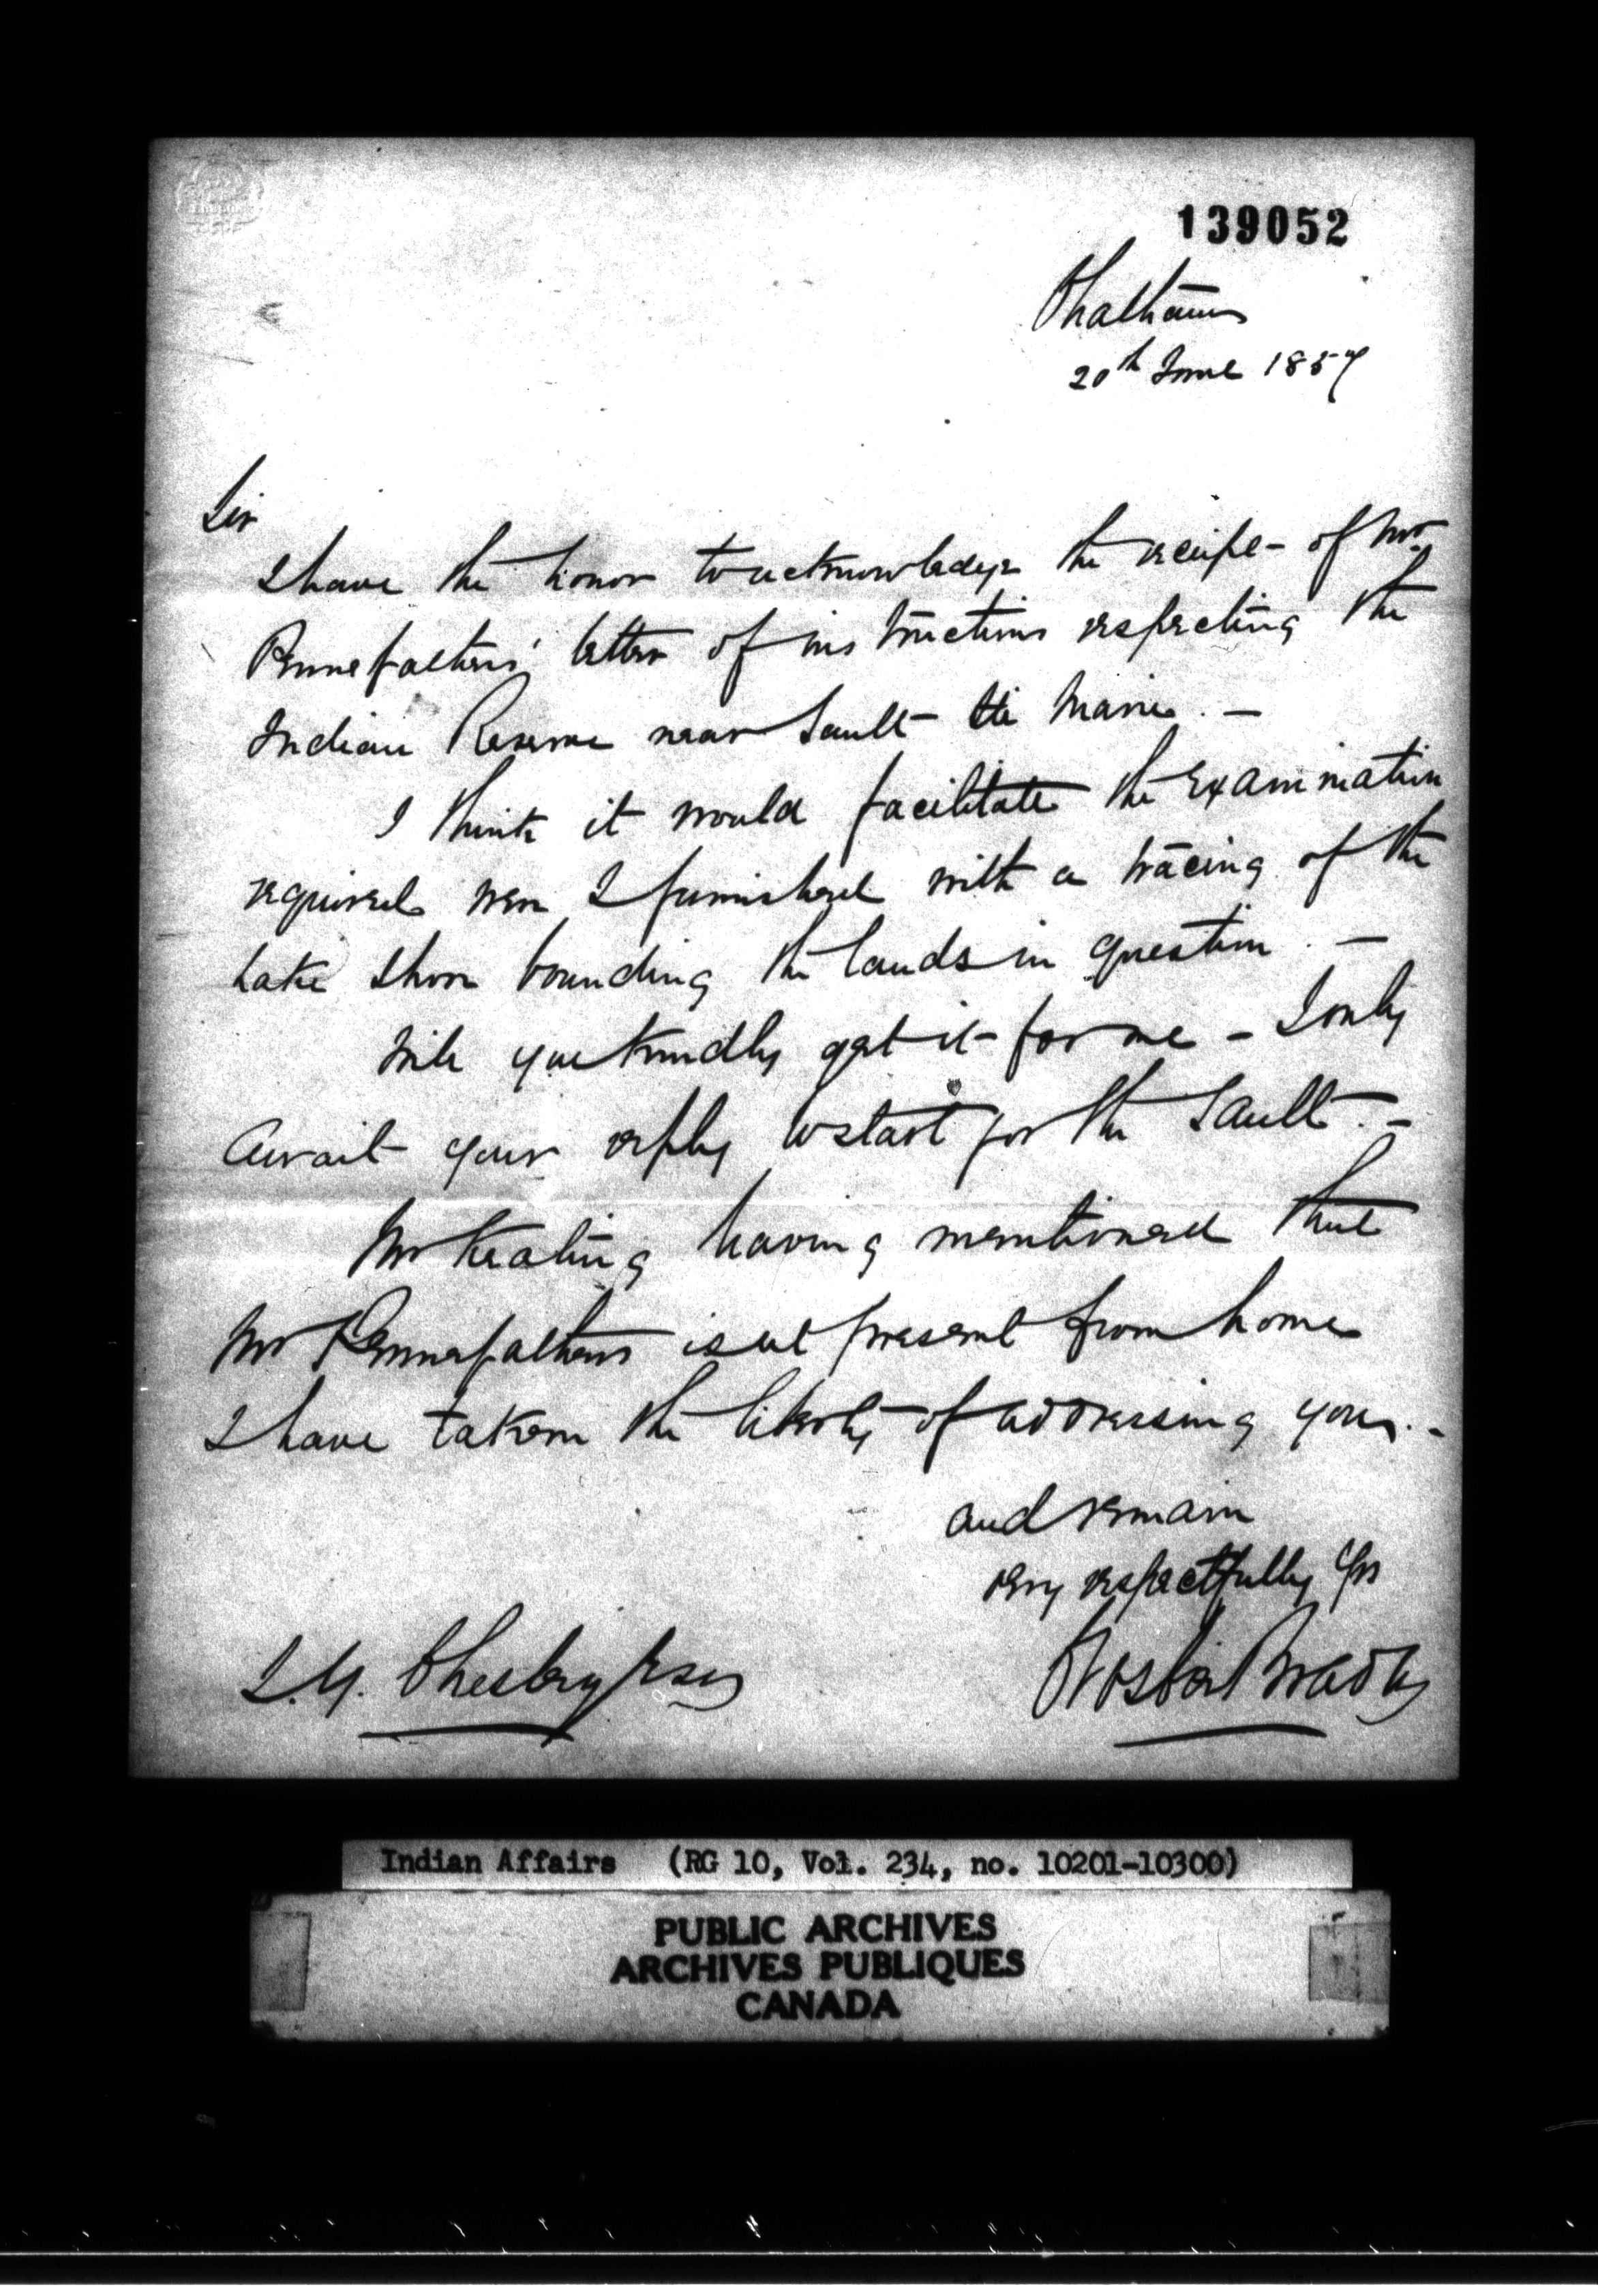 139052
Chatham
20th June 1857
Sir
I have the honor to acknowledge the receipt of Mr
Pennefathers' letter of instructions respecting the
Indian Reserve near Sault Ste Marie. -
I think it would facilitate the examination
required were I furnished with a tracing of the
Lake Shore bounding the lands in question. -
Will you kindly get it for me - I only
await your reply to start for the Sault. -
Mr Keating having mentioned that
Mr Pennefather is at present from home
I have taken the liberty of addressing you. -
and remain
Very respectfully Yrs
S.Y. Chesley Esq
Bradley
Indian Affairs (RG 10, Vol. 234, no. 10201-10300)
PUBLIC ARCHIVES
ARCHIVES PUBLIQUES
CANADA